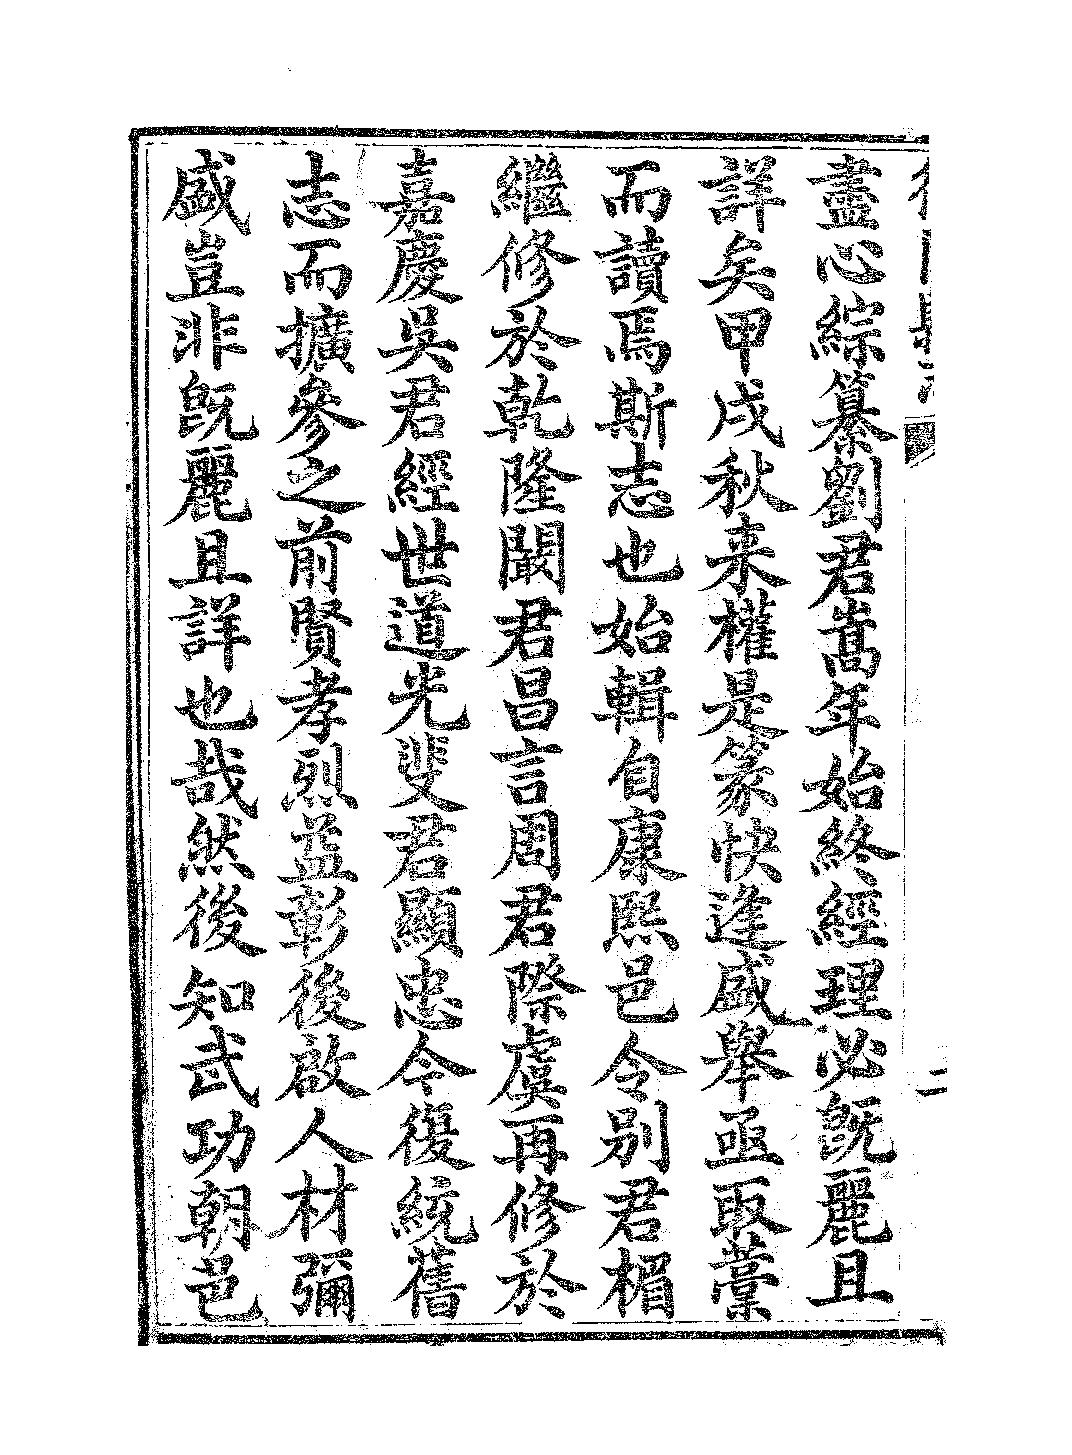 盡心綜纂劉君嵩年始終經理必旣麗且
詳矣甲戌秋来權是篆快逢盛舉亟取藁
而讀焉斯志也始輯自康熙邑令別君楣
繼修於乾隆闞君昌言周君際虞再修於
嘉慶吳君經世道光斐君顯忠今復統舊
志而擴參之前賢孝烈益彰後啟人材彌
盛豈非旣麗且詳也哉然後知武功朝邑
二